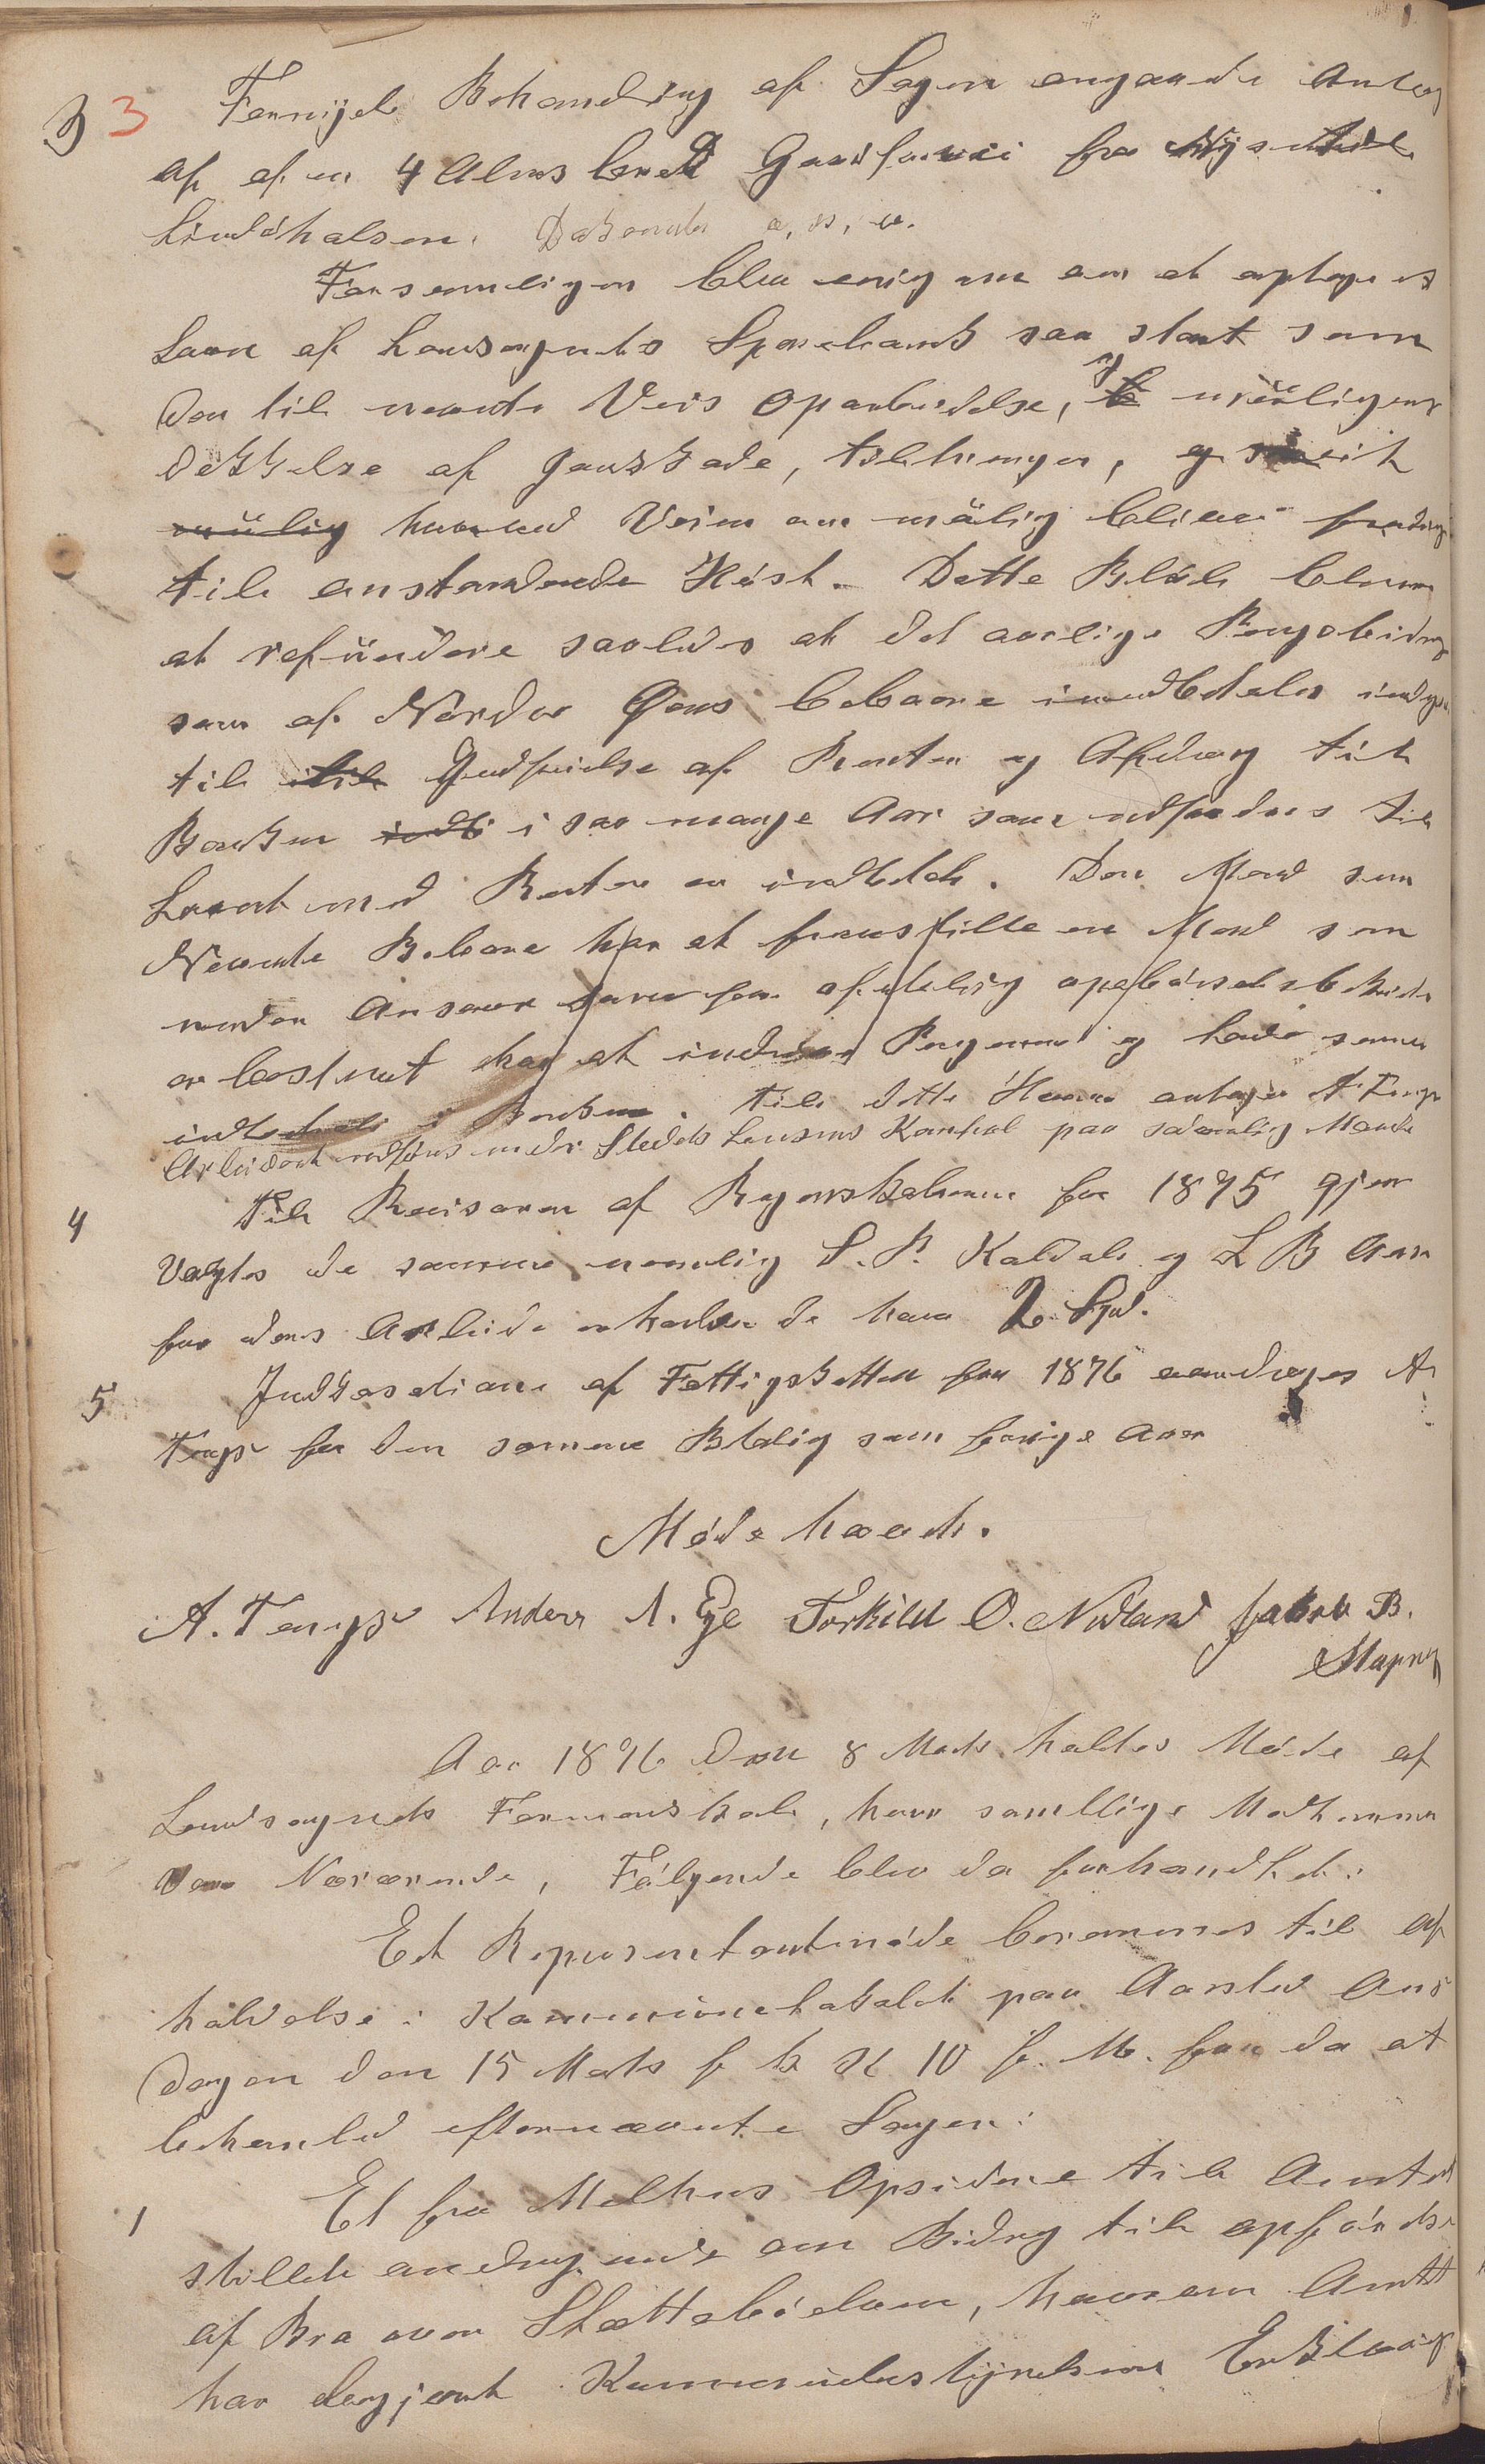 3 3 Fornyet Behandling af Sagen angaaende Anlæg
af af en 4 Alens bred Gaardsvei fra
Lindshalsen.
Forsamligen blev enig om at optage et
Laan af Landsognets Sparebank saa stort som
den til nævnte Veis Oparbeidelse, og mueligens
dekkelse af Jordskade, tiltrenges,
muelig hvorved Veien om mulig bliver færdig
til anstaaende Høst. Dette Beløb bliver
at refundere saaledes at det aarlige Pengebidrag
som af Nordre Beboere indbetales indgaar
til til Godtgjørelse af Renten og Afdrag til
Banken i saa mange Aar som udfordres til
Laanet med Renter er indbetalt. Den Mand som
Nævnte Beboere har at fremstille en Mand som
under Ansvar
er bestemt har at inddrive Pengene og lade samme
indbetale i Banken. Til dette Hverv antages A Tengs
Arbeidet udføres under Stedets Lensmans Kontrol paa sædvanlig Maade
4 Til Revisorer af Regnskaberne for 1875 gjen
valgtes de samme nemlig S. S. Kaldal og L B Aase
for deres Arbeide erholder de hver 2 Spd.
5 Indkassationen af Fattigskatten for 1876 overdrages A
Tengs for den samme Betaling som forrige Aar
Møde hævet.
A. Tengs Anders A. Eje Torkild O. Nodland Jakob B.
Maning
Aar 1876 Den 8 Marts holdtes Møde af
Landsognets Formandskab, hvor samtlige Medlemmer
Vare Nærværende, Følgende blev da forhandlet:
Et Representantmøde berammes til af
holdelse i Kommunelokalet paa Aarstad Ons
dagen den 15 Marts f k Kl 10 f. M. for da at
behandle efternævnte Sager:
1 Et fra Melhus Opsidere til Amtet
stillet andragende om Bidrag til opførelse
af Bro over Slettebøelven, hvorom Amtet
har begjært Kommunebestyrelsens Erklæring